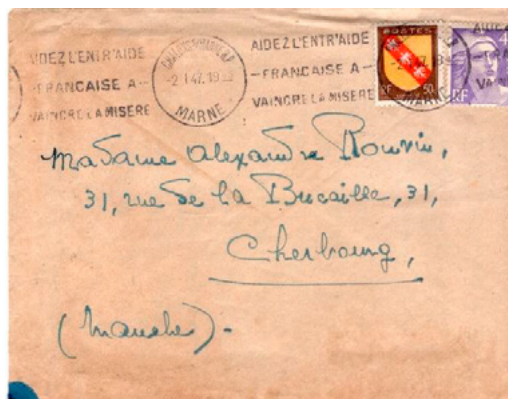 AIDEZ L'ENTR'AIDE
-FRANCAISE A-
VAINCRE LA MISERE
-2.1.47.
MARNE
AIDEZ L'ENTR'AIDE
-FRANCAISE A-
VAINCRE LA MISERE
POSTES
RF
MARNE
RF
Madame Alexandre Rouvin,
31, rue de la Bucaille, 31,
Cherbourg,
(Manche).-